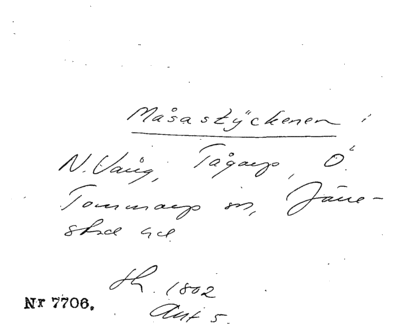 Måsastyckenen i
N. Vång, Tågarp, Ö.
Tommarp sn, Järre-
stad hd
Sk. 1802
Akt 5.
Nr 7706.